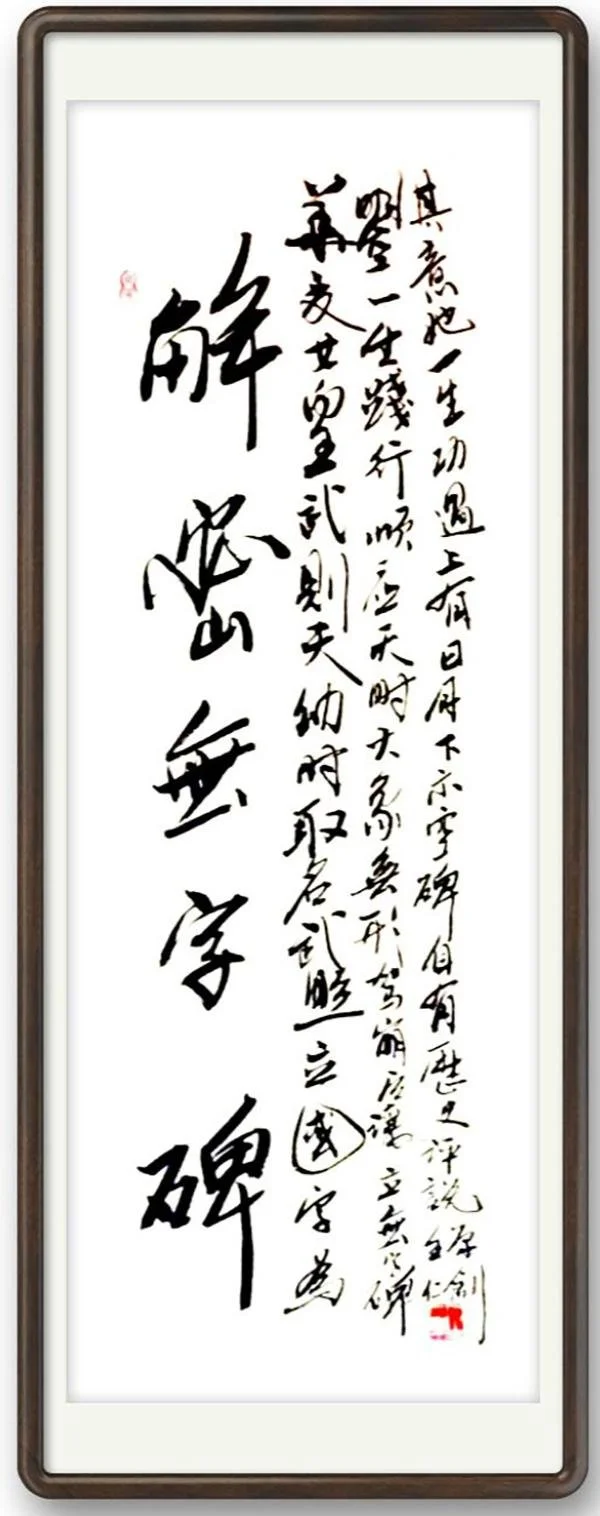 解密無字碑
華夏女皇武則天幼时取名武照立國字為
曌一生踐行顺应天時大象無形駕崩后讓立無字碑
其意她一生功過上有日月下示空碑自有歷史評說
原創